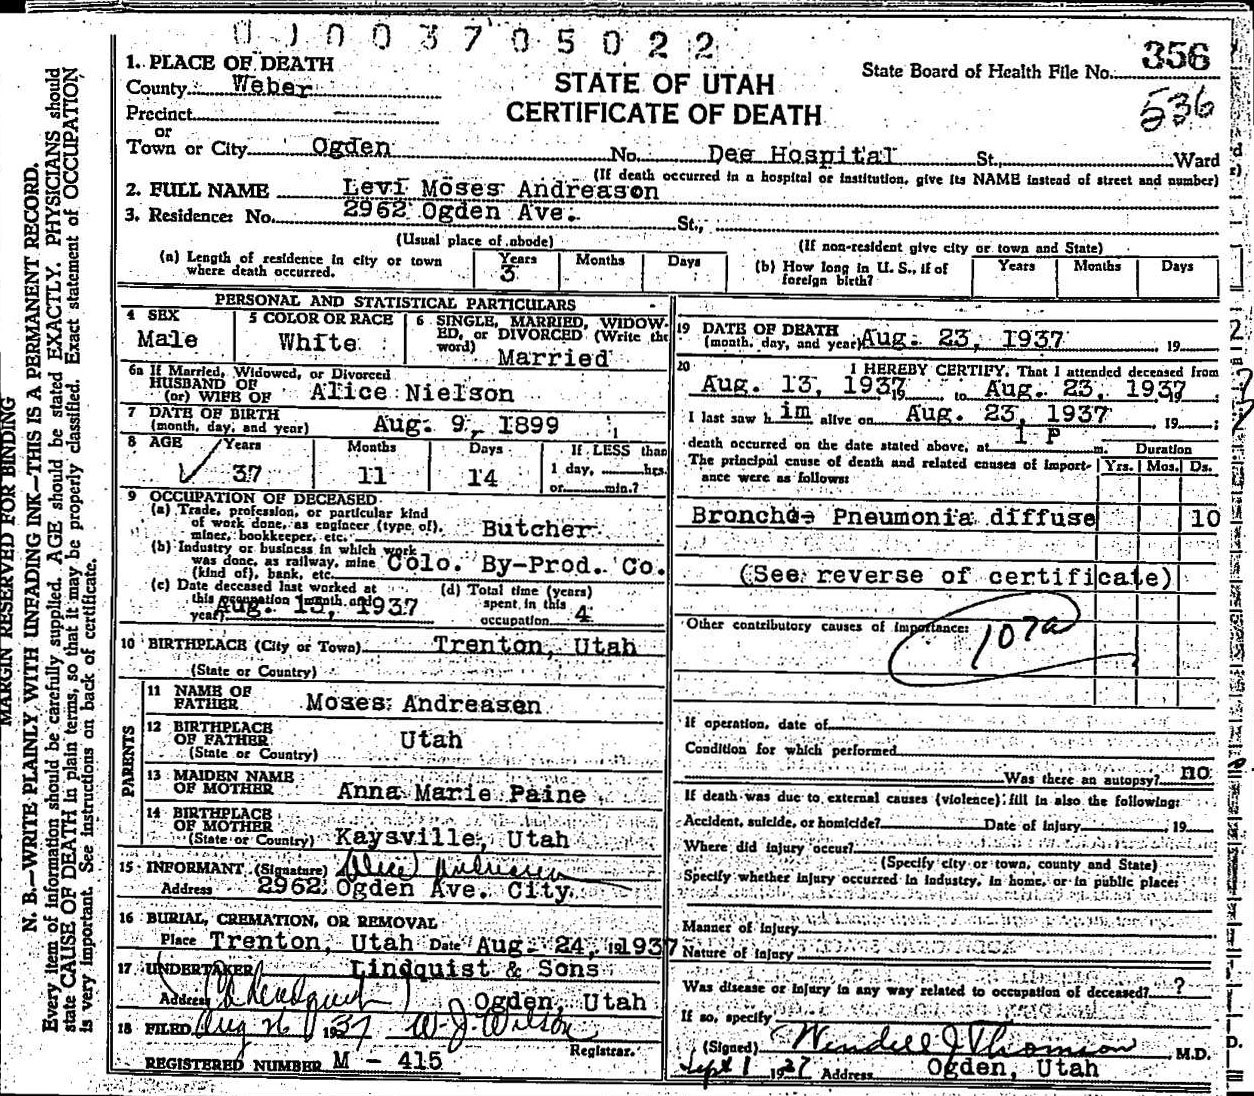 0100370 5022
1. PLACE OF DEATH
County Weber
STATE OF UTAH
CERTIFICATE OF DEATH
State Board of Health File No. 356
536
Precinct
or
Town or City Ogden No. Dee Hospital St., Ward
(If death occurred in a hospital or institution, give its NAME instead of street and number)
2. FULL NAME Levi Moses Andreason
3. Residence: No. 2962 Ogden Ave. St.,
(Usual place of abode) (If non-resident give city or town and State)
(a) Length of residence in city or town where death occurred. Years 3 Months Days
(b) How long in U. S., if of foreign birth? Years Months Days
PERSONAL AND STATISTICAL PARTICULARS
4 SEX Male
5 COLOR OR RACE White
6 SINGLE, MARRIED, WIDOWED, or DIVORCED (Write the word) Married
6a If Married, Widowed, or Divorced
HUSBAND OF
(or) WIFE OF Alice Nielson
7 DATE OF BIRTH
(month, day, and year) Aug. 9, 1899
8 AGE Years 37 Months 11 Days 14 If LESS than 1 day, hrs. or min.?
9 OCCUPATION OF DECEASED
(a) Trade, profession, or particular kind
of work done, as engineer (type of),
miner, bookkeeper, etc. Butcher
(b) Industry or business in which work
was done, as railway, mine
(kind of), bank, etc. Colo. By-Prod. Co.
(c) Date deceased last worked at
this occupation (month and
year) 1937
(d) Total time (years)
spent in this
occupation 4
10 BIRTHPLACE (City or Town) Trenton, Utah
(State or Country)
PARENTS
11 NAME OF
FATHER Moses Andreasen
12 BIRTHPLACE
OF FATHER Utah
(State or Country)
13 MAIDEN NAME
OF MOTHER Anna Marie Paine
14 BIRTHPLACE
OF MOTHER
(State or Country) Kaysville, Utah
15 INFORMANT (Signature) Alice Andreasen
Address 2962 Ogden Ave. City.
16 BURIAL, CREMATION, OR REMOVAL
Place Trenton, Utah Date Aug. 24, 1937
17 UNDERTAKER Lindquist & Sons
Address Ogden, Utah
18 FILED Aug 26 1937 W. J. Wilson
Registrar.
REGISTERED NUMBER M - 415
19 DATE OF DEATH
(month, day, and year) Aug. 23, 1937 19
20 I HEREBY CERTIFY, That I attended deceased from
Aug. 13, 1937 19 to Aug. 23, 1937 19 ;
I last saw him alive on Aug. 23, 1937 19 ;
death occurred on the date stated above, at 1 P m. Duration
The principal cause of death and related causes of importance were as follows: Yrs. Mos. Ds.
Broncho- Pneumonia diffuse 10
(See reverse of certificate)
Other contributory causes of importance:
107a
If operation, date of
Condition for which performed
Was there an autopsy? no
If death was due to external causes (violence) fill in also the following:
Accident, suicide, or homicide? Date of injury , 19
Where did injury occur?
(Specify city or town, county and State)
Specify whether injury occurred in industry, in home, or in public place:
Manner of injury
Nature of injury
Was disease or injury in any way related to occupation of deceased? ?
If so, specify
(Signed) Wendell J Thomson M.D.
Sept 1 1937 Address Ogden, Utah
MARGIN RESERVED FOR BINDING
N. B.—WRITE PLAINLY WITH UNFADING INK—THIS IS A PERMANENT RECORD.
Every item of information should be carefully supplied. AGE should be stated EXACTLY. PHYSICIANS should
state CAUSE OF DEATH in plain terms, so that it may be properly classified. Exact statement of OCCUPATION
is very important. See instructions on back of certificate.